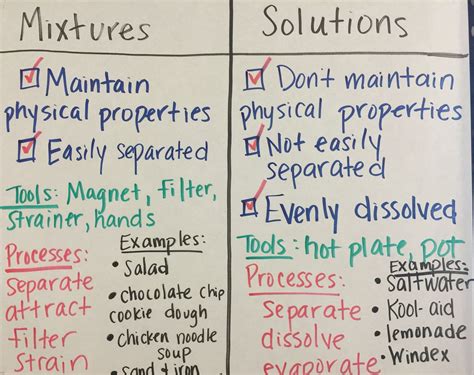 Mixtures
Maintain
physical properties
Easily separated
Tools: Magnet, filter,
strainer, hands
Processes:
Separate
attract
filter
strain
Examples:
• Salad
• chocolate chip
cookie dough
• chicken noodle
soup
• sand & iron
Solutions
Don't maintain
physical properties
Not easily
separated
Evenly dissolved
Tools: hot plate, pot
Processes:
Separate
dissolve
evaporate
Examples:
• Saltwater
• Kool-aid
• lemonade
• Windex